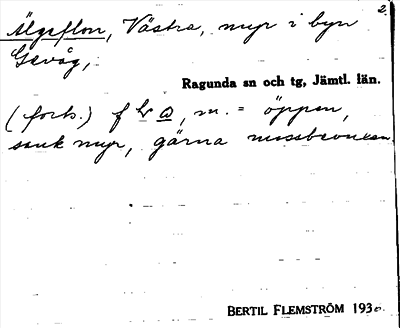 2.
Älgaflon, Västra, myr i byn
Gevåg,
Ragunda sn och tg, Jämtl. län.
(forts.) f m. = öppen,
sank myr, gärna mossbevuxen
BERTIL FLEMSTRÖM 193